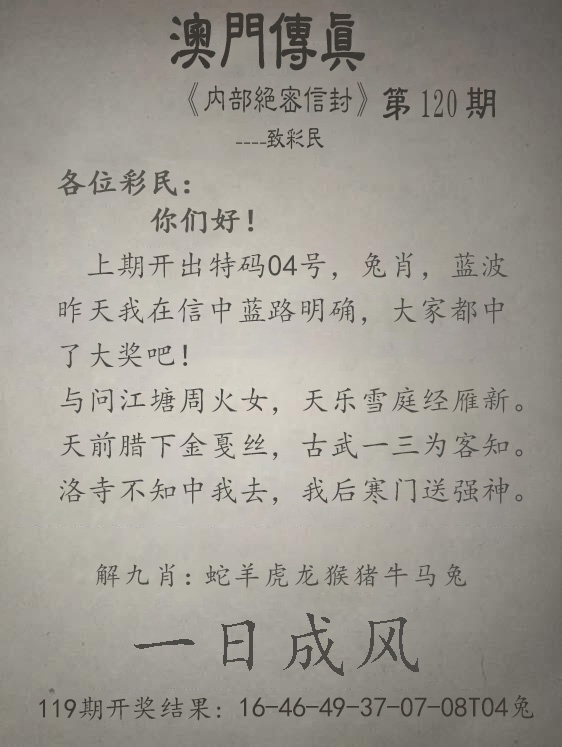 澳門傳真
《内部絕密信封》第120期
----致彩民
各位彩民：
你们好！
上期开出特码04号，兔肖，蓝波
昨天我在信中蓝路明确，大家都中
了大奖吧！
与问江塘周火女，天乐雪庭经雁新。
天前腊下金戛丝，古武一三为客知。
洛寺不知中我去，我后寒门送强神。
解九肖：蛇羊虎龙猴猪牛马兔
一日成风
119期开奖结果：16-46-49-37-07-08T04兔